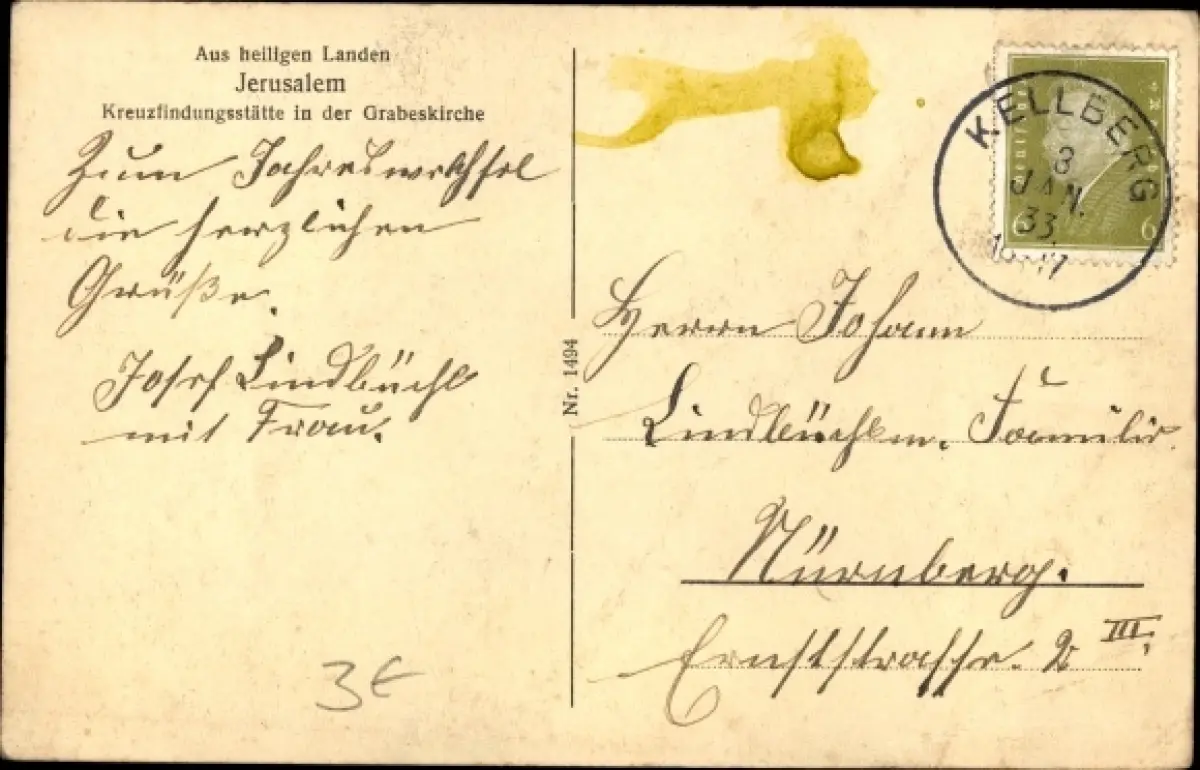 Aus heiligen Landen
Jerusalem
Kreuzfindungsstätte in der Grabeskirche
Zum Jahreswechsel
die herzlichen
Grüße.
Josef Lindbüchl
mit Frau.
3€
Nr. 1494
KELLBERG
8
JAN.
33.
6 6
Herrn Johann
Lindbüchl m. Familie
Nürnberg.
Ernststrasse. 2 III.